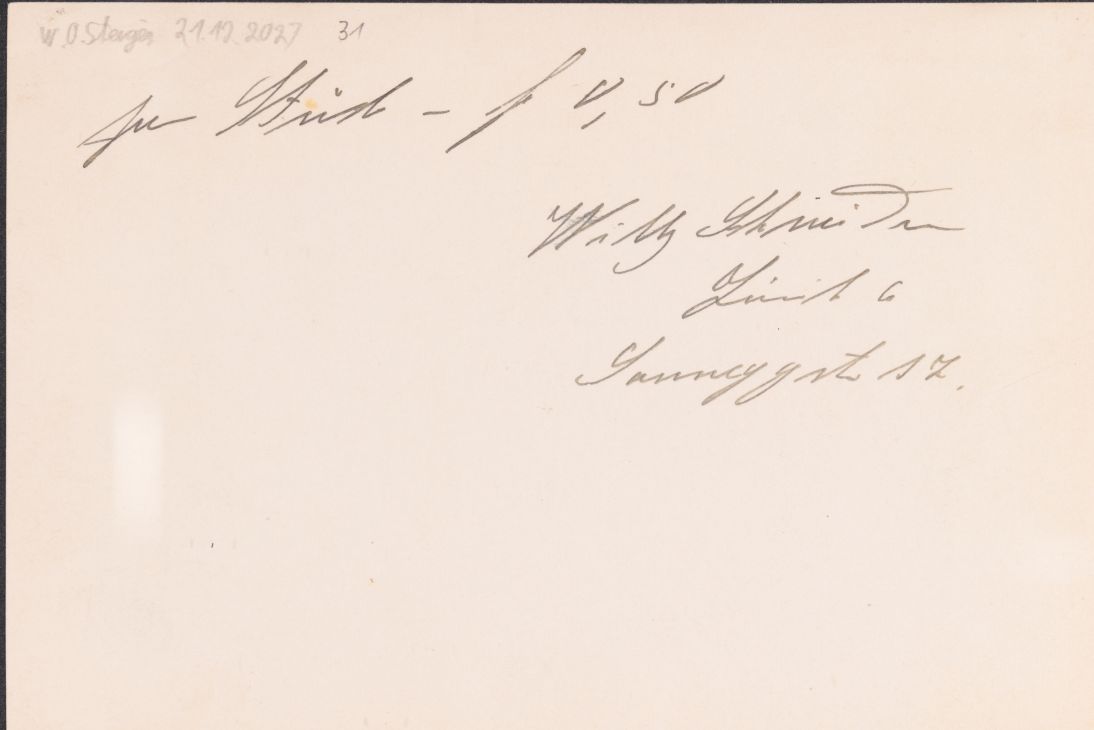 W. O. Steiger 21.12.2027 31
per Stück – f 0,50
Willy Schneider
Zürich 6
Sonneggstr 17.